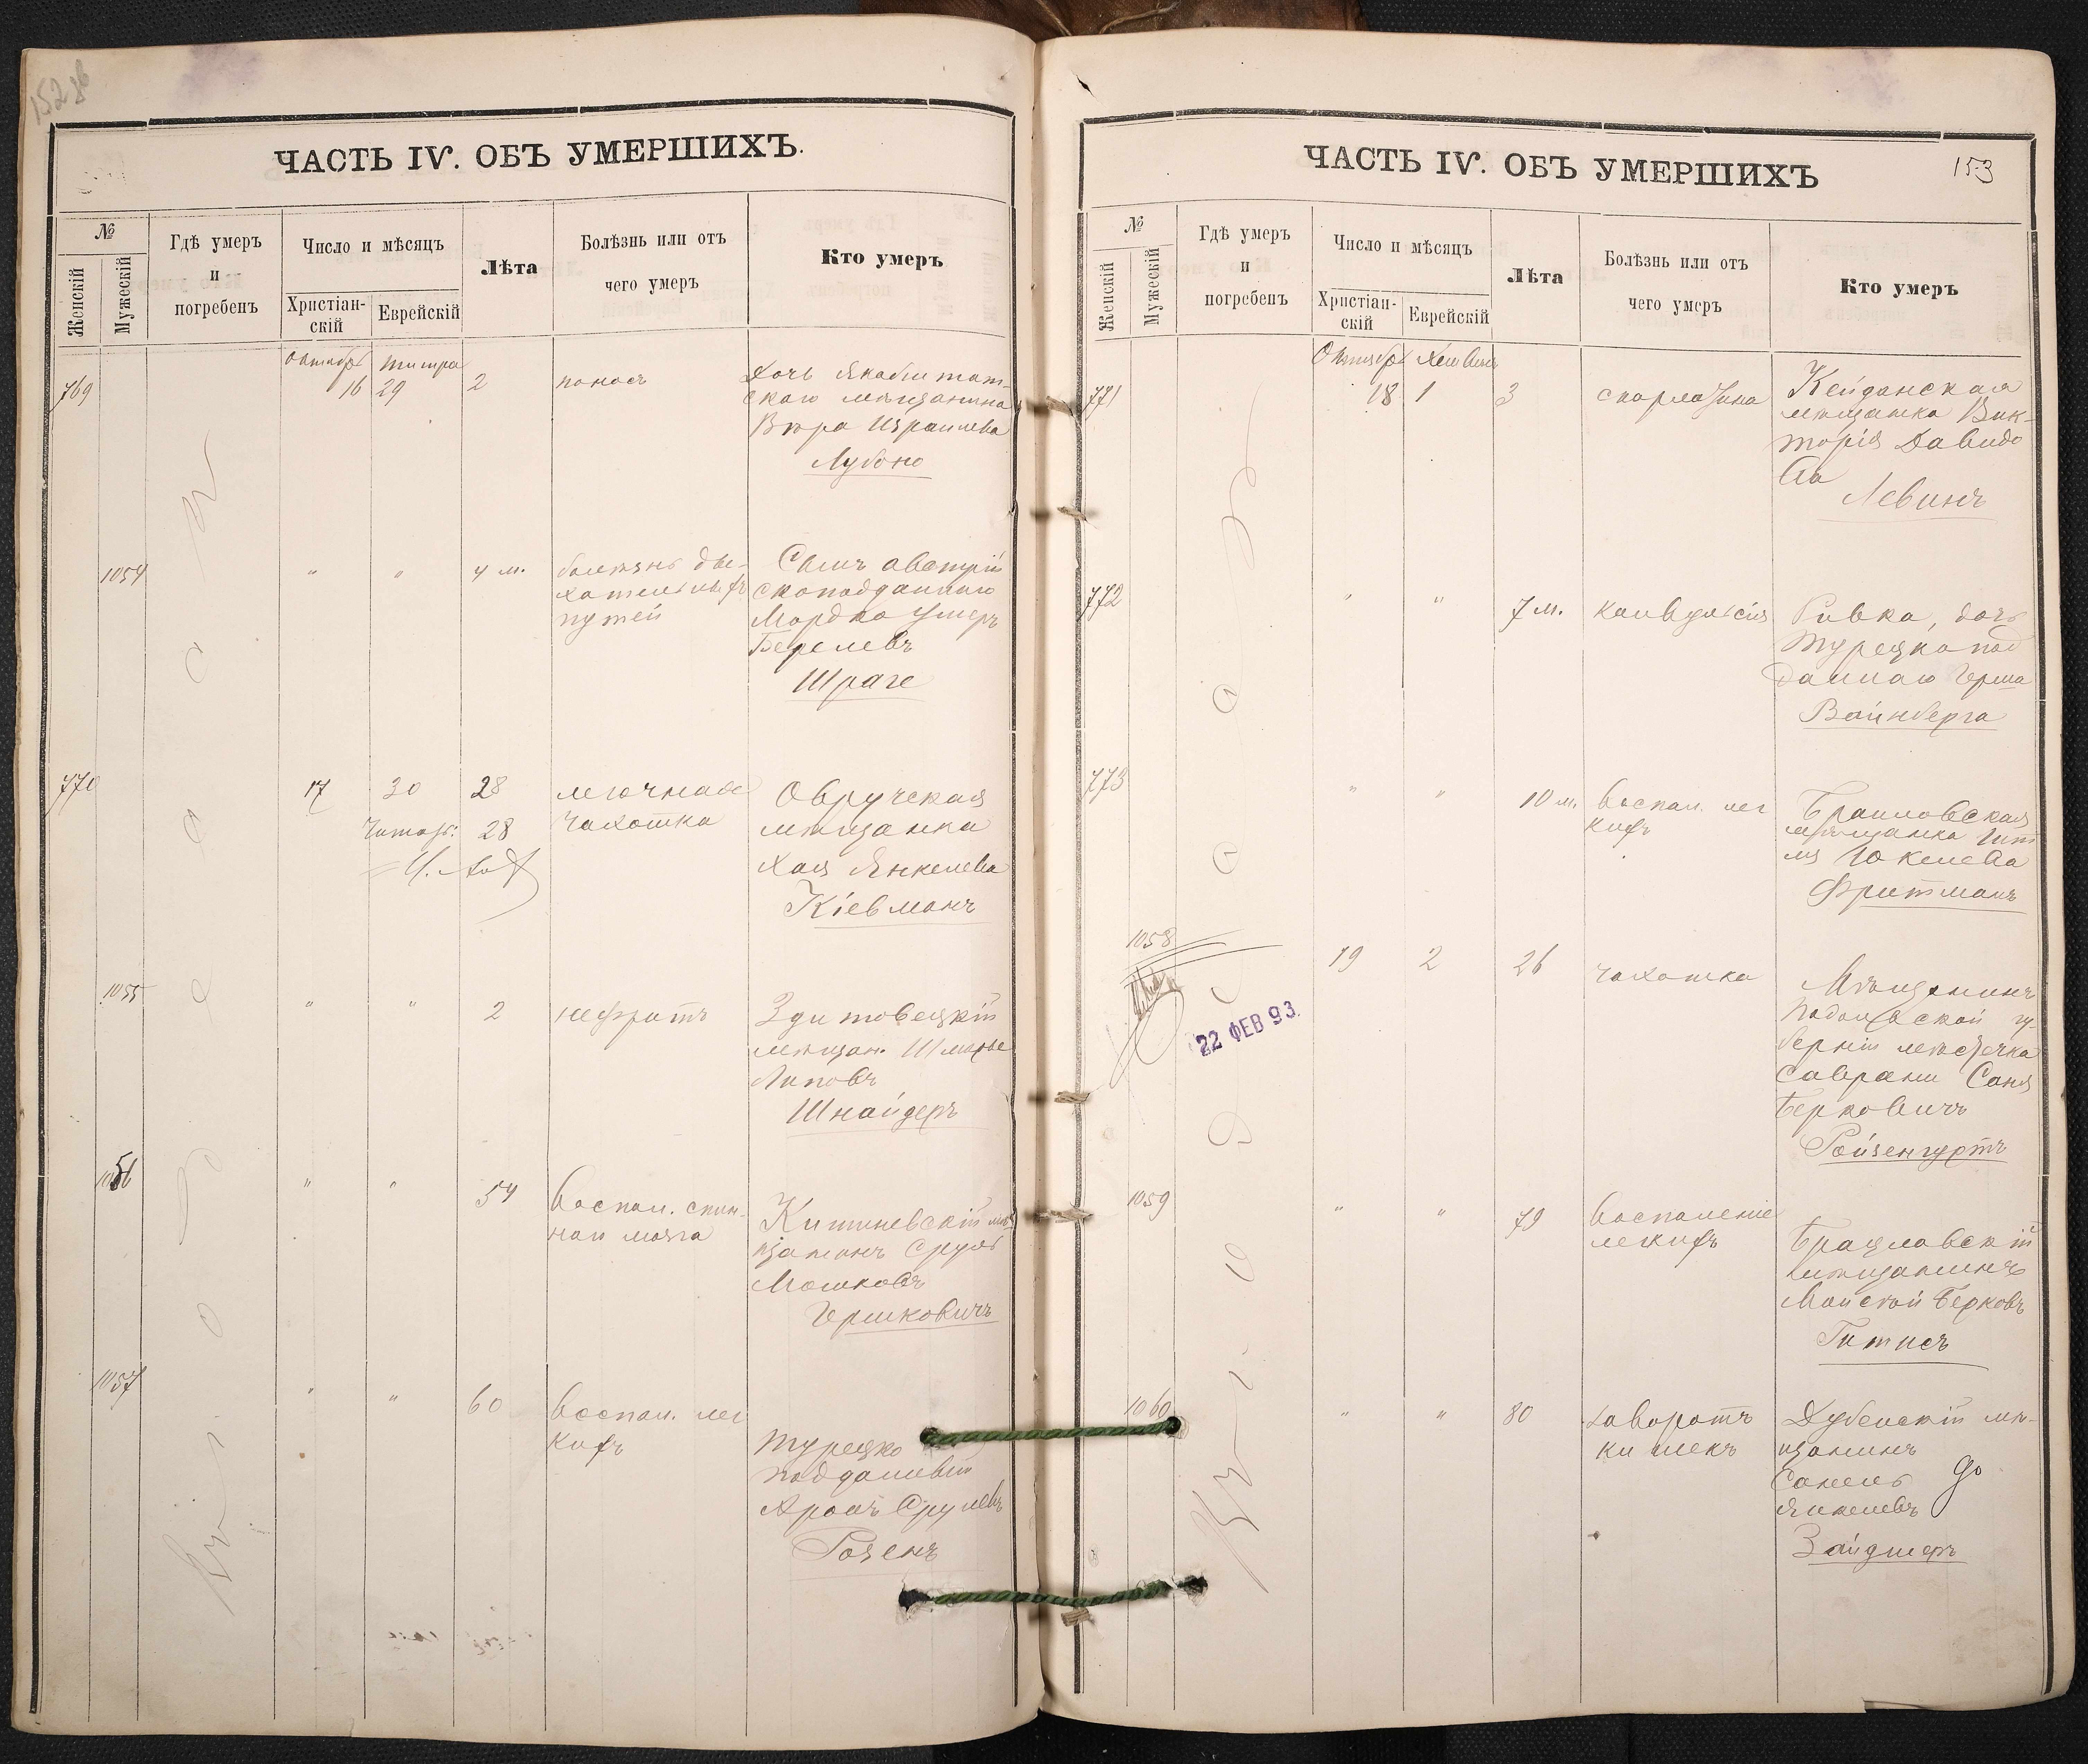 152 об
ЧАСТЬ IV. ОБЪ УМЕРШИХЪ.
№
Женскій
Мужескій
Гдѣ умеръ
и
погребенъ
Число и мѣсяцъ
Христіан-
скій
Еврейскій
Лѣта
Болѣзнь или отъ
чего умеръ
Кто умеръ
Въ г. Одессѣ
Октябрь
769
16
29
2
поносъ
Дочь
скаго мѣщанина
Израилева
1054
"
"
4 м.
болѣзнь ды-
хательныхъ
путей
Сынъ австрій
скоподданнаго
Мордко Умеръ
Берелевъ
Шраге
770
17
30
28
легочная
чахотка
28
Овручская
мѣщанка
Хая Янкелева
Кіевманъ
1055
"
"
2
нефритъ
мѣщан.
Липовъ
Шнайдеръ
1056
"
"
54
воспал. спин-
наго мозга
Кишиневскій мѣ
щанинъ Сруль
Мошковъ
Гершковичъ
1057
"
"
60
воспал. лег
кихъ
Турецко
подданный
Аронъ Срулевъ
Розенъ
ЧАСТЬ IV. ОБЪ УМЕРШИХЪ
153
№
Женскій
Мужескій
Гдѣ умеръ
и
погребенъ
Число и мѣсяцъ
Христіан-
скій
Еврейскій
Лѣта
Болѣзнь или отъ
чего умеръ
Кто умеръ
Въ г. Одессѣ
Октябрь
771
18
1
3
скарлатина
Кейданская
мѣщанка Вик-
торія Давидо
ва
Левинъ
772
"
"
7 м.
конвульсія
Ривка, дочь
турецкопод
даннаго Герша
Вайнберга
773
"
"
10 м.
воспал. лег
кихъ
Браиловская
мѣщанка Гит
ля Юкелева
Фритманъ
1058
19
2
26
чахотка
22 ФЕВ 93.
Мѣщанинъ
Подольской гу-
берніи мѣстечка
Саврани
Берковичъ
Ройзенгуртъ
1059
"
"
79
воспаленіе
легкихъ
Брацлавскій
мѣщанинъ
Мойсей Берковъ
Гитисъ
1060
"
"
80
заворотъ
кишекъ
Дубенскій мѣ-
щанинъ
Янкелевъ
Зайднеръ